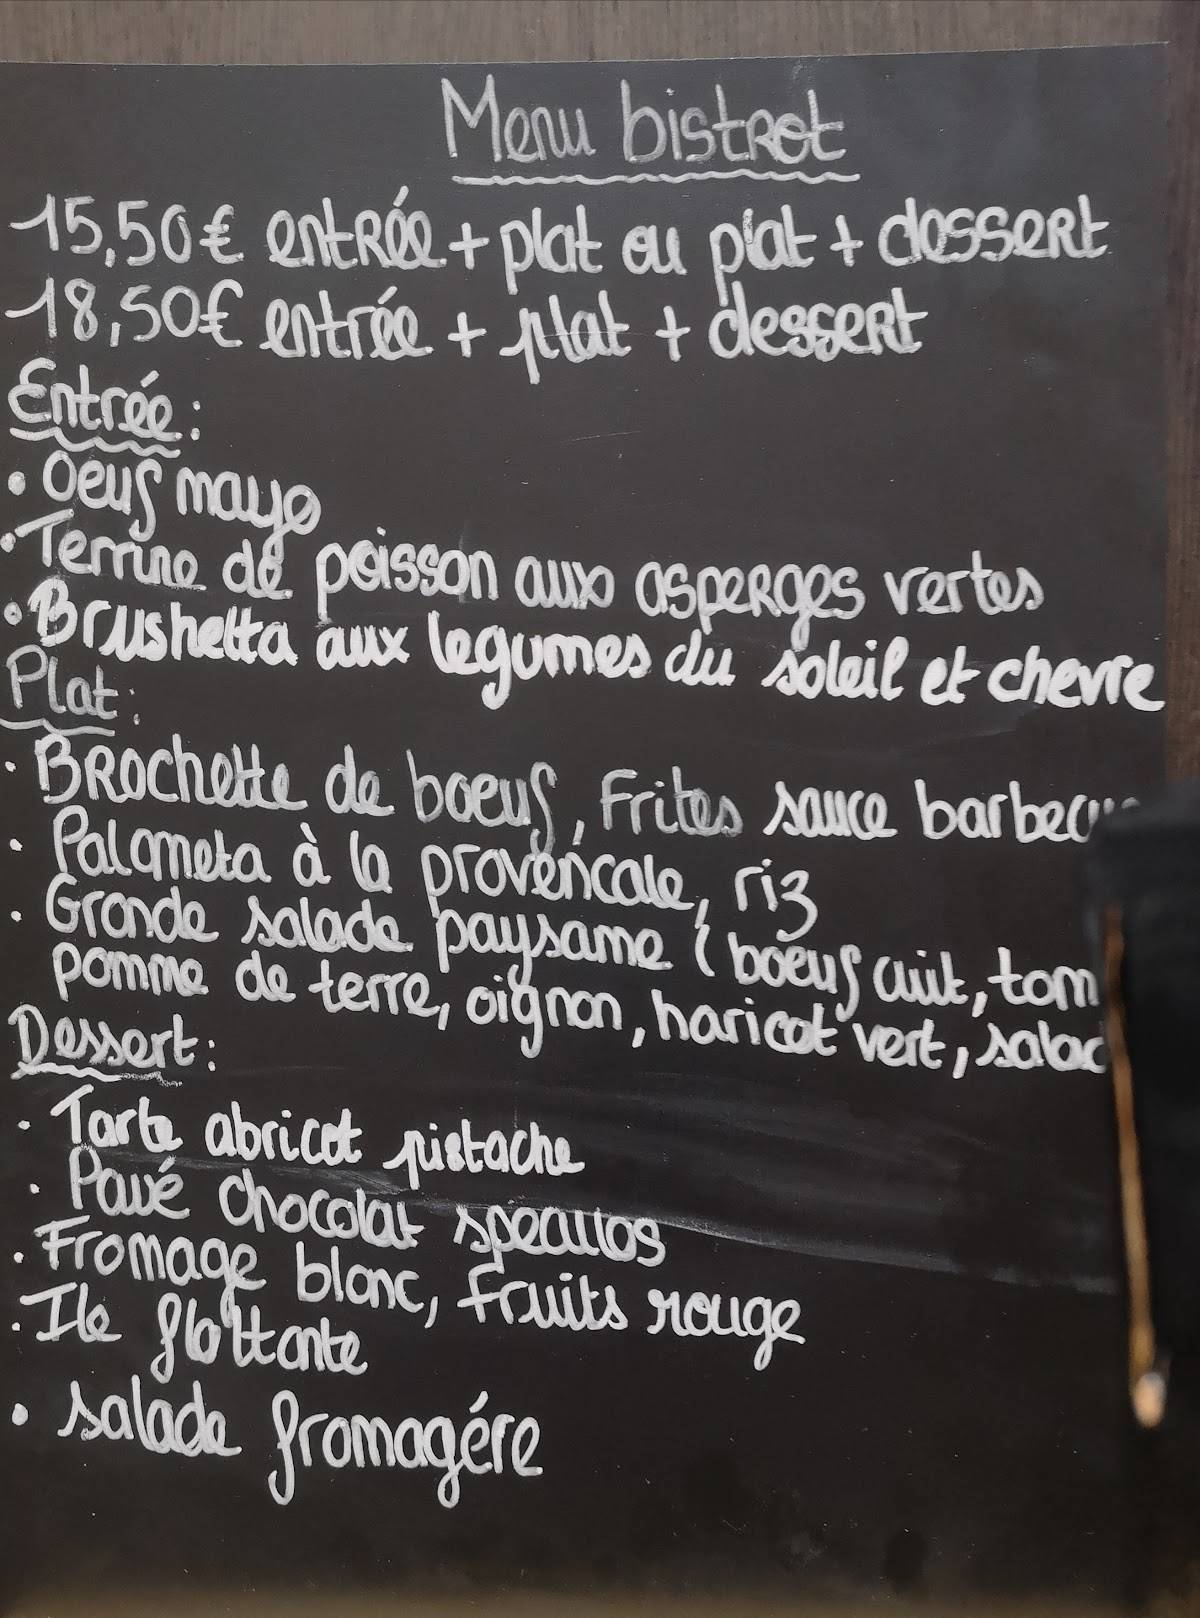 Menu bistrot
15,50€ entrée + plat ou plat + dessert
18,50€ entrée + plat + dessert
Entrée :
• Oeuf mayo
• Terrine de poisson aux asperges vertes
• Brushetta aux legumes du soleil et chevre
Plat :
• Brochette de boeuf, Frites sauce barbecu
• Palometa à la provençale, riz
• Grande salade paysanne ( boeuf cuit, tom
pomme de terre, oignon, haricot vert, salad
Dessert :
• Tarte abricot pistache
• Pavé chocolat speculos
• Fromage blanc, Fruits rouge
• Ile flottante
• salade fromagére